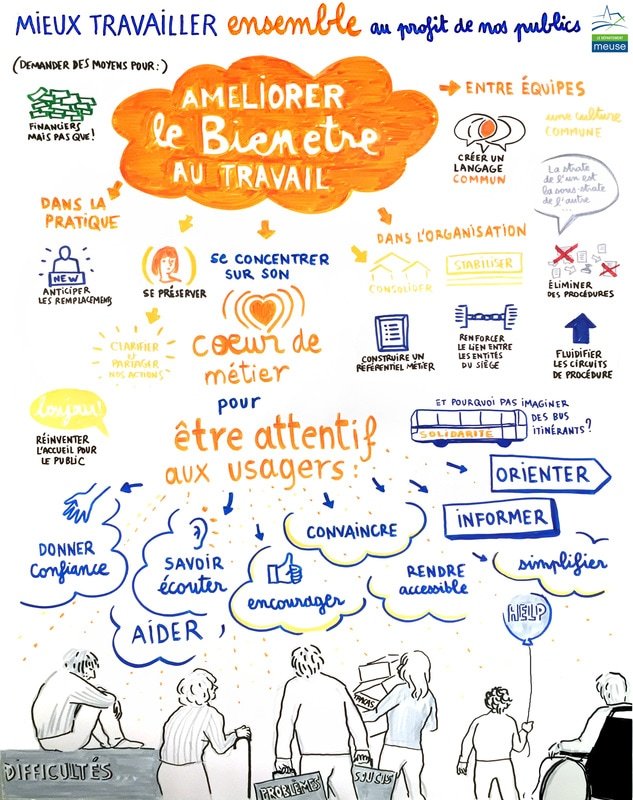 MIEUX TRAVAILLER ensemble au profit de nos publics
LE DÉPARTEMENT
meuse
(DEMANDER DES MOYENS POUR:)
FINANCIERS
MAIS PAS QUE!
AMELIORER
le Bien être
AU TRAVAIL
ENTRE ÉQUIPES
CRÉER UN
LANGAGE
COMMUN
une culture
COMMUNE
La strate
de l'un est
la sous-strate
de l'autre
...
DANS LA
PRATIQUE
NEW
ANTICIPER
LES REMPLACEMENTS
SE PRÉSERVER
SE CONCENTRER
SUR SON
coeur de
métier
pour
être attentif
aux usagers:
DANS L'ORGANISATION
CONSOLIDER
STABILISER
ÉLIMINER
DES PROCÉDURES
CONSTRUIRE UN
RÉFÉRENTIEL MÉTIER
RENFORCER
LE LIEN ENTRE
LES ENTITÉS
DU SIÈGE
FLUIDIFIER
LES CIRCUITS
DE PROCÉDURE
CLARIFIER
et
PARTAGER
NOS ACTIONS
bonjour!
RÉINVENTER
L'ACCUEIL POUR
LE PUBLIC
ET POURQUOI PAS IMAGINER
DES BUS
ITINÉRANTS?
SOLIDARITÉ
ORIENTER
INFORMER
DONNER
confiance
SAVOIR
écouter
encourager
CONVAINCRE
RENDRE
accessible
simplifier
AIDER
HELP
TRACAS
DIFFICULTÉS...
PROBLÈMES
SOUCIS